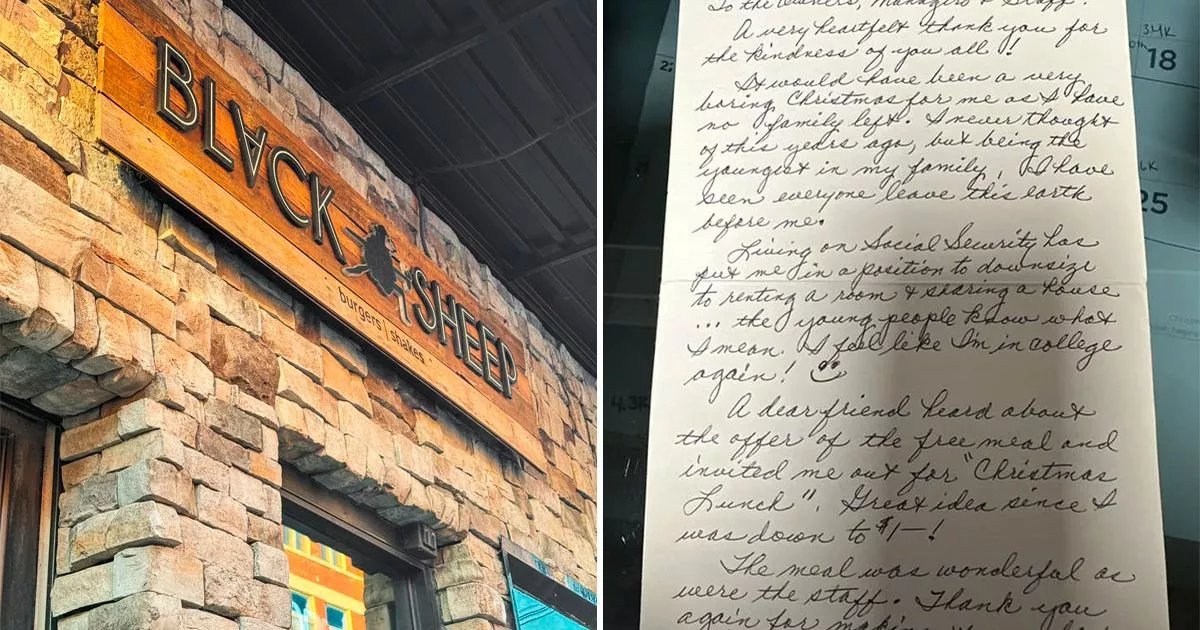 BLACK SHEEP
burgers | shakes
To the Owners, Managers & Staff:
A very heartfelt thank you for
the kindness of you all!
It would have been a very
boring Christmas for me as I have
no family left. I never thought
of this years ago, but being the
youngest in my family, I have
seen everyone leave this earth
before me.
Living on Social Security has
put me in a position to downsize
to renting a room & sharing a house
... the young people know what
I mean. I feel like I'm in college
again!
A dear friend heard about
the offer of the free meal and
invited me out for "Christmas
Lunch". Great idea since I
was down to $1—!
The meal was wonderful as
were the staff. Thank you
again for making
34K
18
25